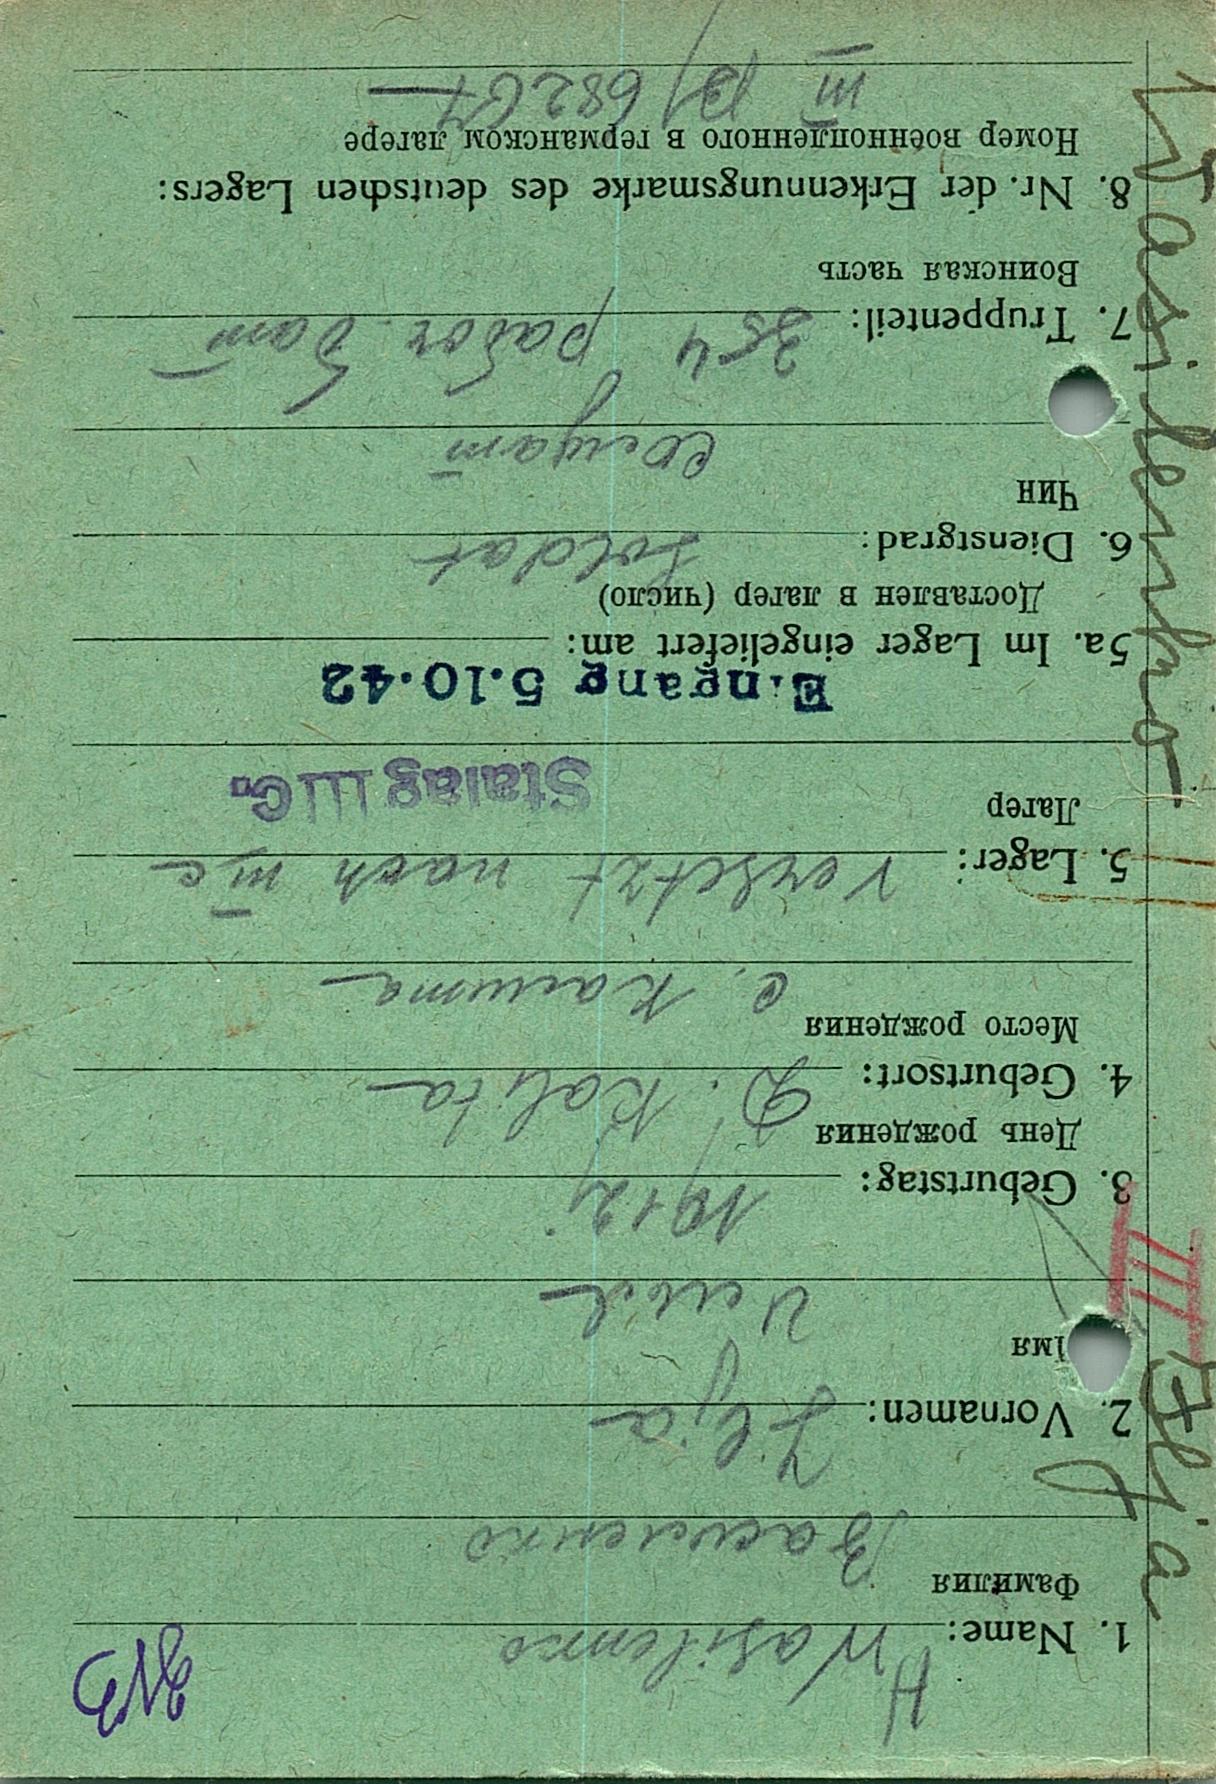 H
1. Name: Wasilenko
Фамилия
Василенко
2. Vornamen: Ilja
Имя
Илья
3. Geburtstag: 1912
День рождения
4. Geburtsort: D. Kalita
Место рождения
с. Калита
5. Lager: versetzt nach III C
Лагер
Stalag III C.
Eingang 5.10.42
5a. Im Lager eingeliefert am:
Доставлен в лагер (число)
6. Dienstgrad: Soldat
Чин
Солдат
7. Truppenteil: 354 рабоч. бат
Воинская часть
8. Nr. der Erkennungsmarke des deutschen Lagers:
Номер военнопленного в германском лагере
III B/68267
Wasilenko
III
Ilja